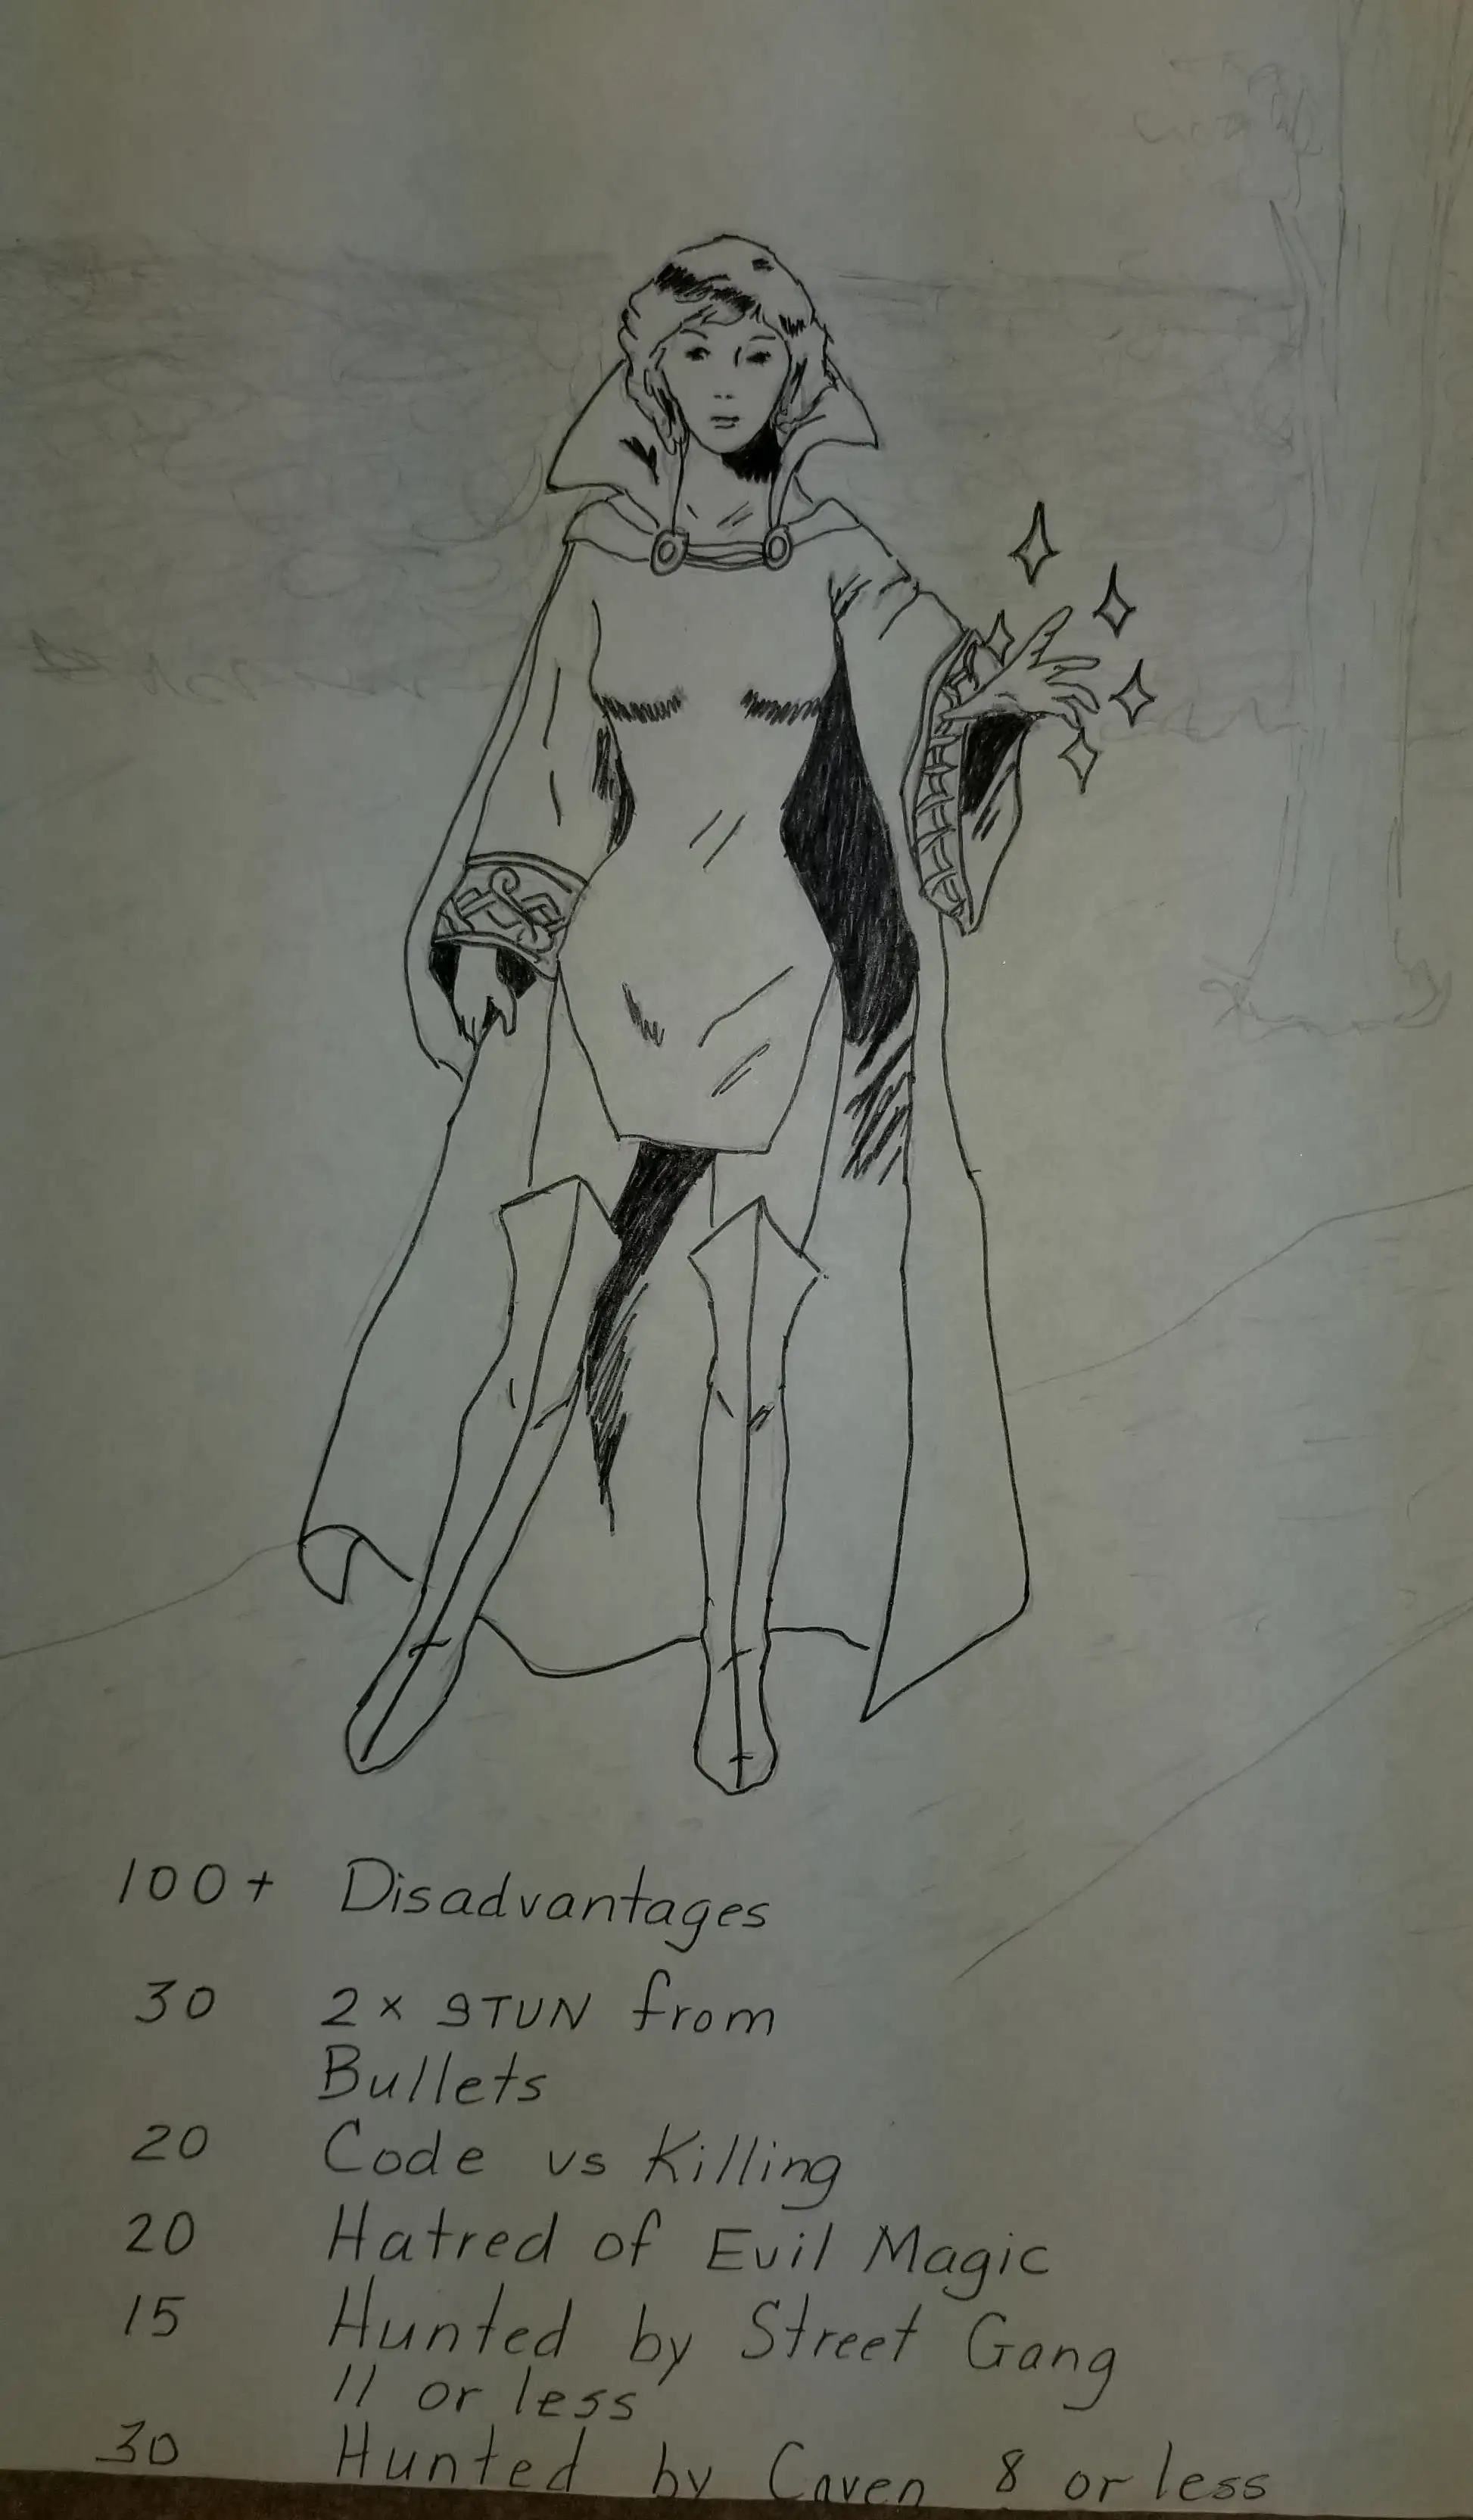 100+ Disadvantages
30 2x STUN from
Bullets
20 Code vs Killing
20 Hatred of Evil Magic
15 Hunted by Street Gang
11 or less
30 Hunted by Coven 8 or less